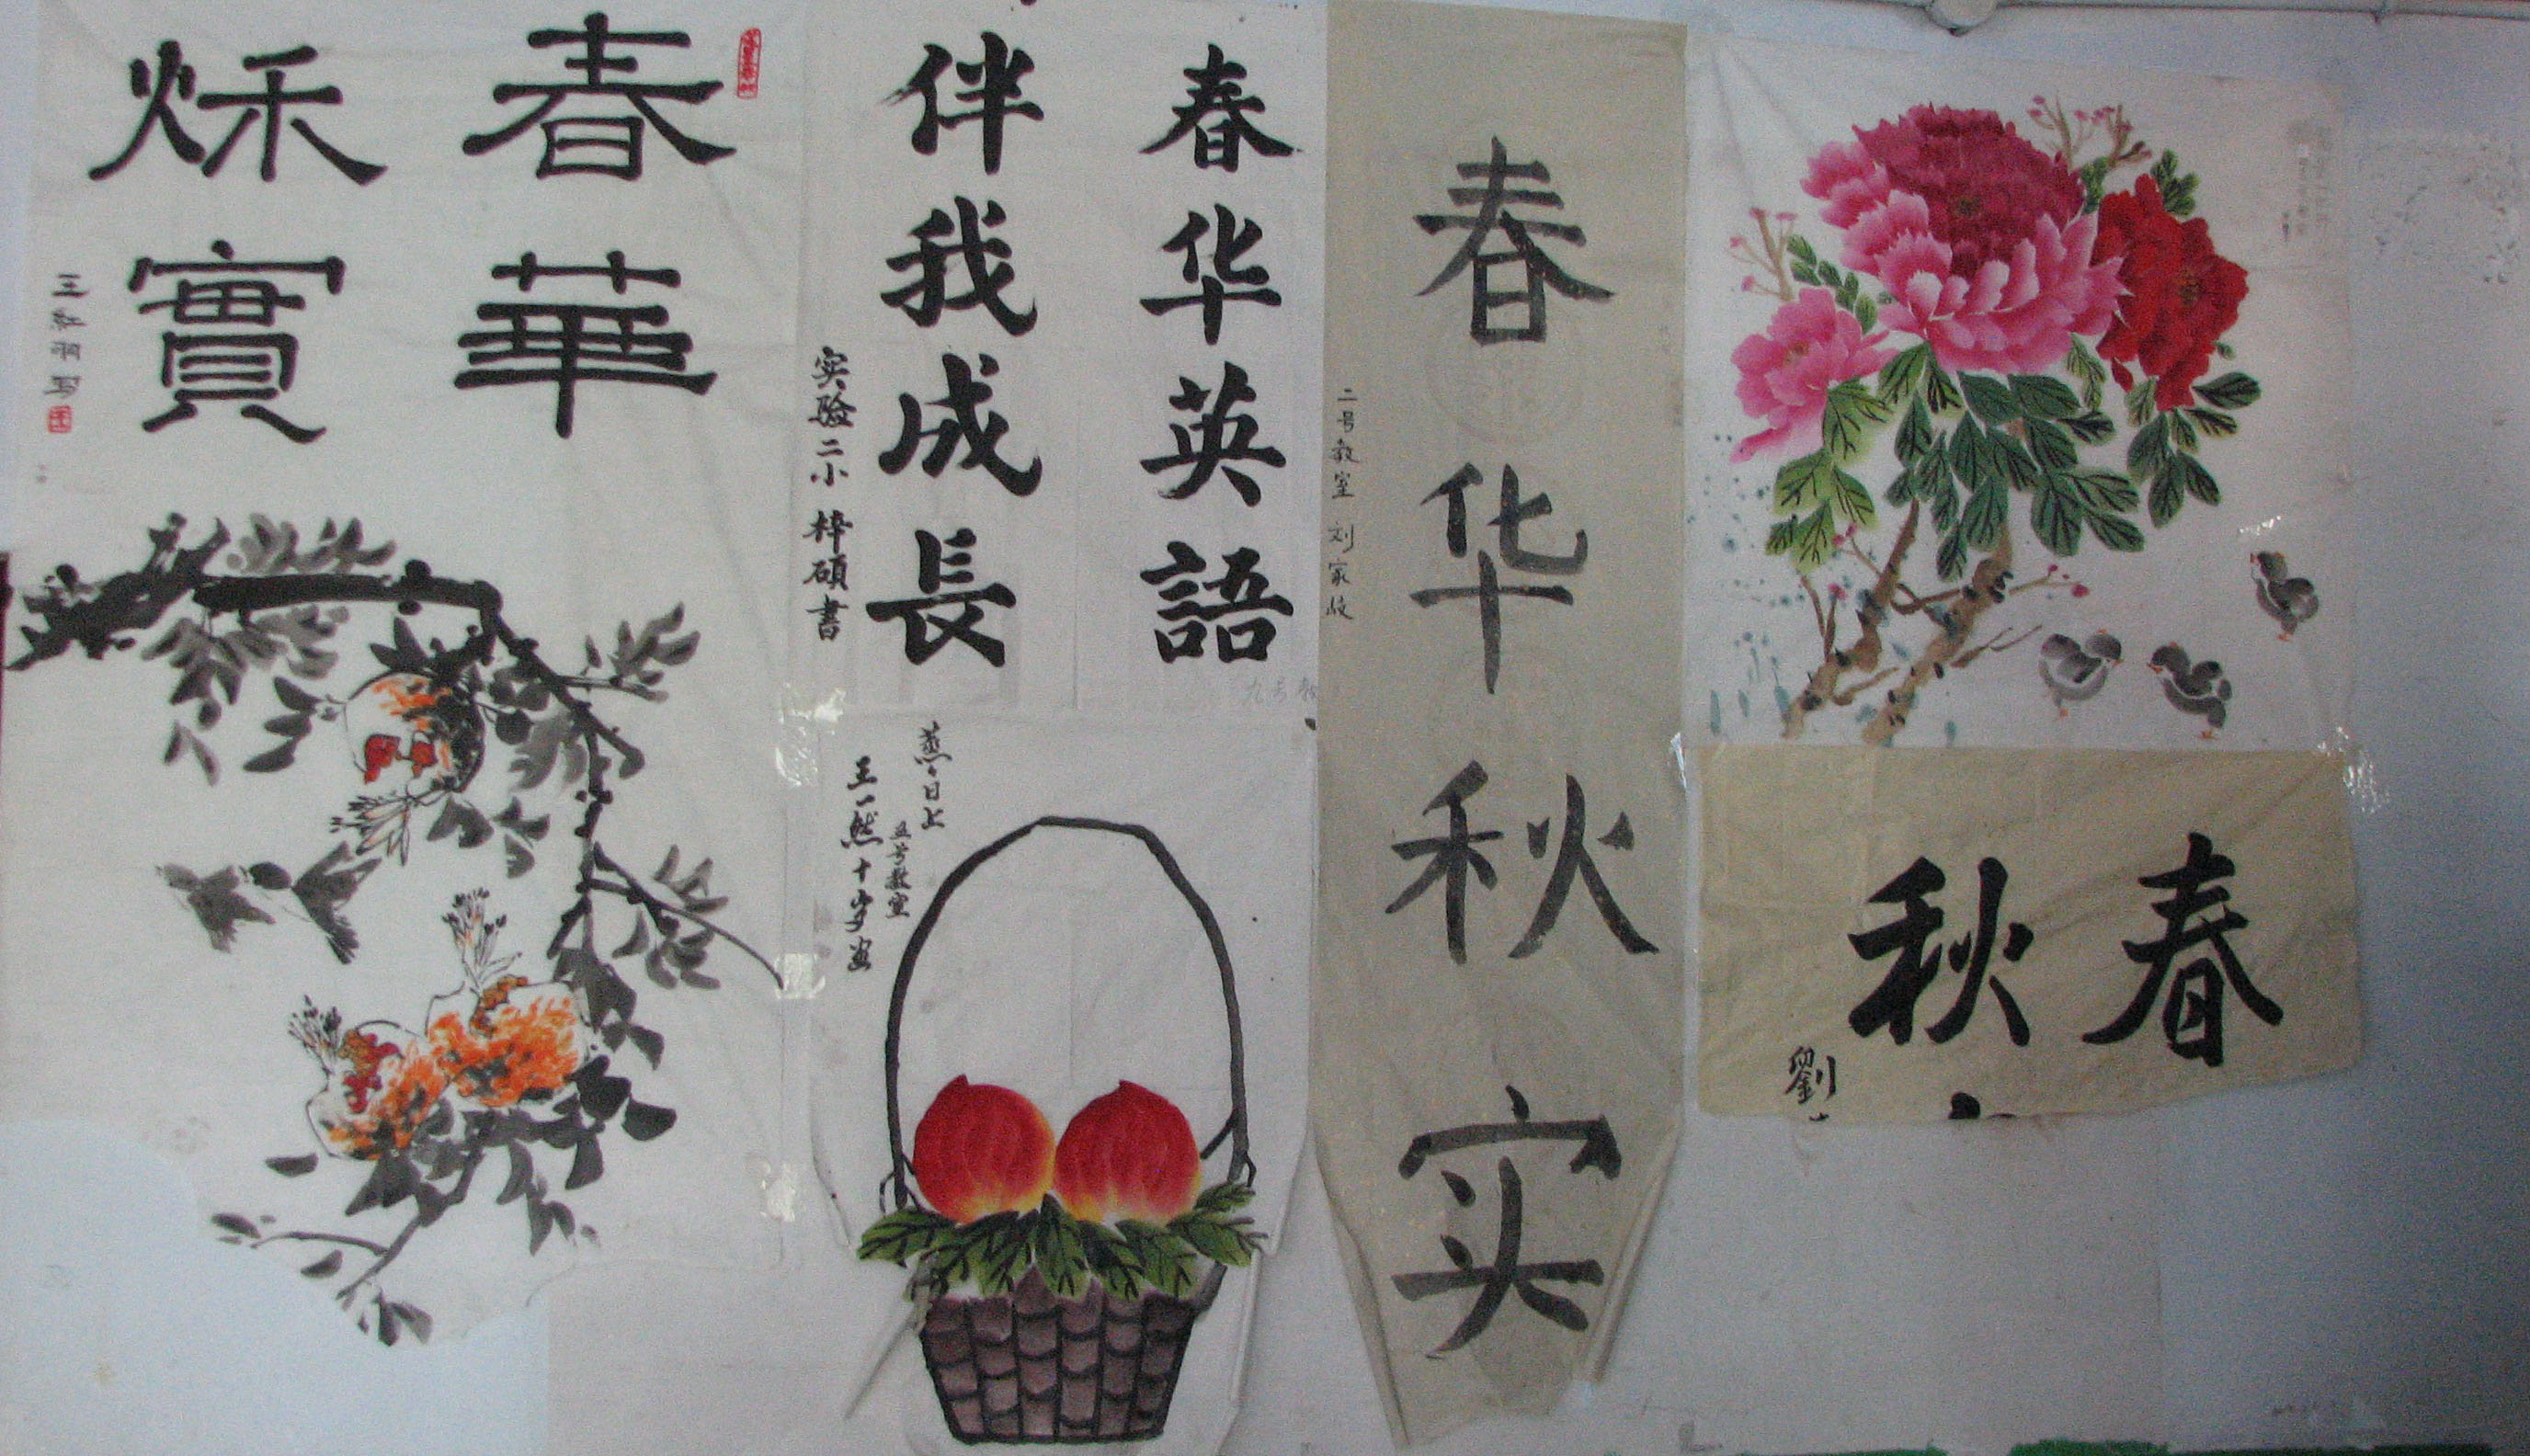 春華
秌實
王紅羽寫
春华英語
伴我成長
实验二小 梓碩書
蒸々日上
五号教室
王一然十岁画
春华秋实
二号教室 刘家
春
秋
劉